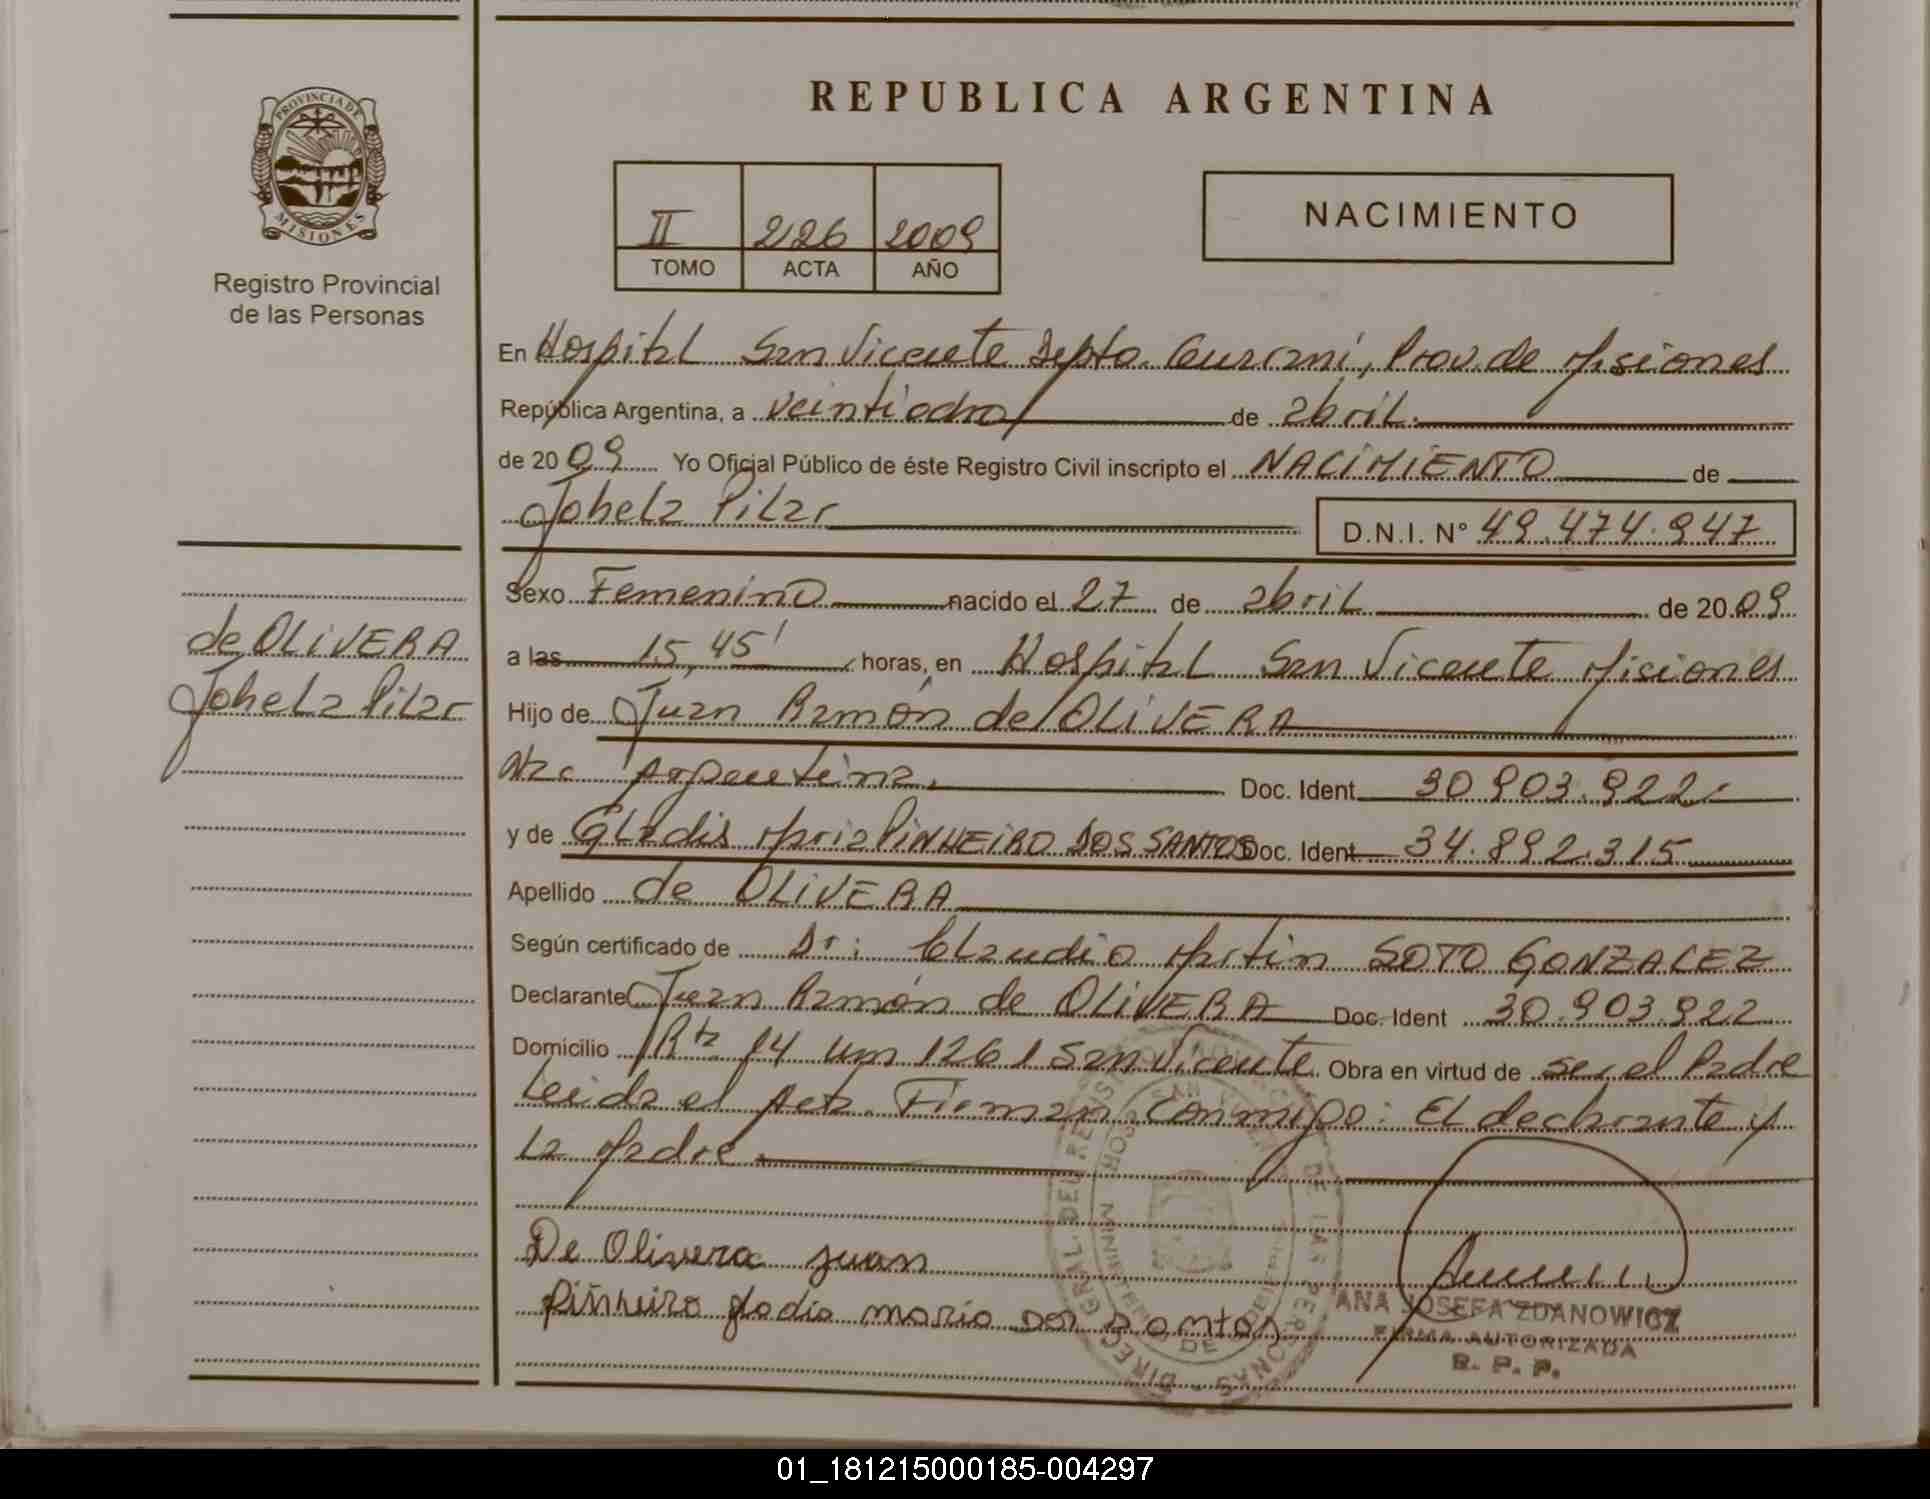 REPUBLICA ARGENTINA
PROVINCIA DE
MISIONES
Registro Provincial
de las Personas
II 226 2009
TOMO ACTA AÑO
NACIMIENTO
En Hospital San Vicente Depto. Guaraní, Prov. de Misiones
República Argentina, a veintiocho de abril.
de 2009 Yo Oficial Público de éste Registro Civil inscripto el NACIMIENTO de
Johela Pilar
D.N.I. N° 49.474.947
Sexo Femenino nacido el 27 de abril de 2009
a las 15,45' horas, en Hospital San Vicente Misiones
Hijo de Juan Ramón de OLIVERA
Nac Argentina. Doc. Ident 30.903.922.-
y de Gladis Maria PINHEIRO DOS SANTOS Doc. Ident 34.892.315
Apellido de OLIVERA
Según certificado de Dr: Claudio Martin SOTO GONZALEZ
Declarante Juan Ramón de OLIVERA Doc. Ident 30.903.922
Domicilio Rta 14 km 1261 San Vicente. Obra en virtud de ser el Padre
Leida el Acta. Firman conmigo: El declarante y
la Madre
de OLIVERA
Johela Pilar
De Olivera Juan
Piñheiro gladis maria dos santos
ANA JOSEFA ZDANOWICZ
FIRMA AUTORIZADA
R. P. P.
DIREC. GRAL. DEL REGISTRO DE LAS PERSONAS
01_181215000185-004297